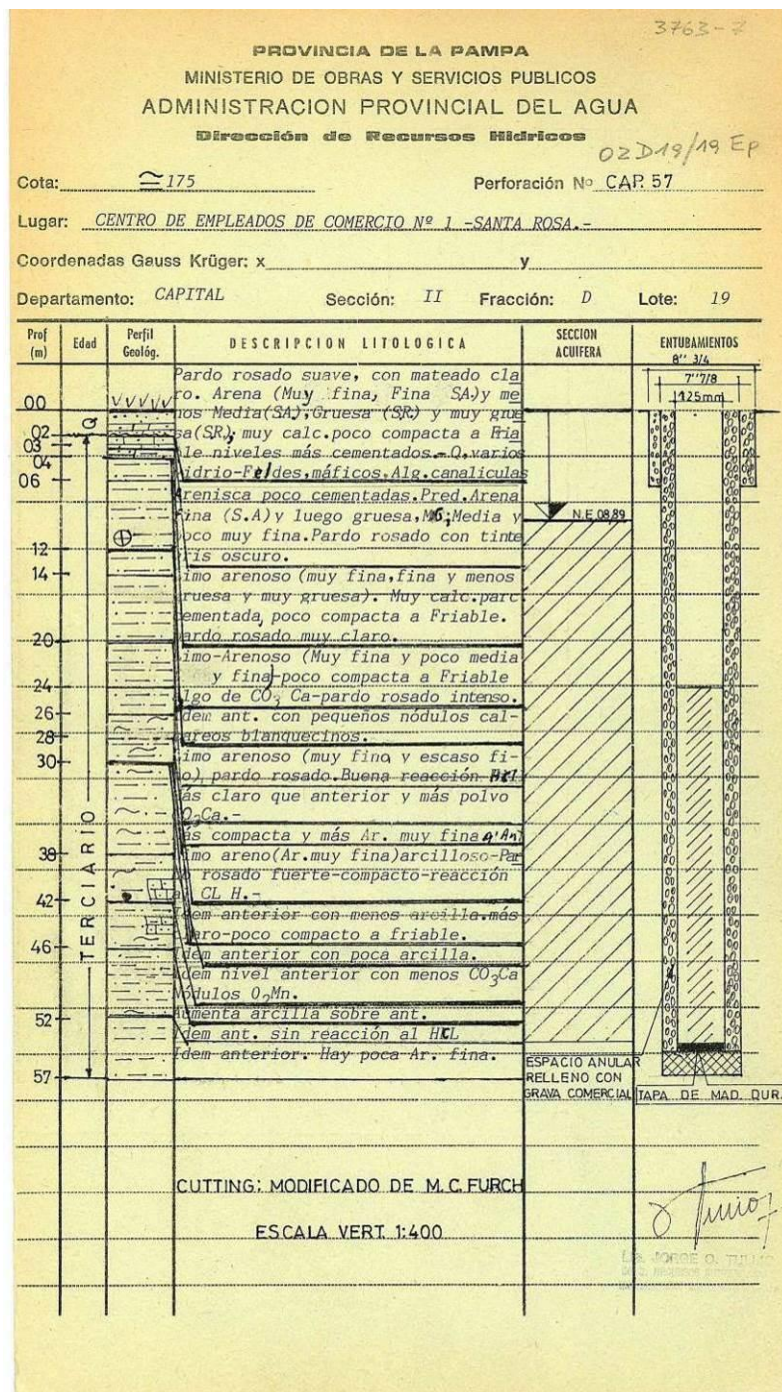 3763-7
PROVINCIA DE LA PAMPA
MINISTERIO DE OBRAS Y SERVICIOS PUBLICOS
ADMINISTRACION PROVINCIAL DEL AGUA
Dirección de Recursos Hídricos
02D19/19 Ep
Cota: ≃175 Perforación Nº CAP. 57
Lugar: CENTRO DE EMPLEADOS DE COMERCIO Nº 1 -SANTA ROSA.-
Coordenadas Gauss Krüger: x y
Departamento: CAPITAL Sección: II Fracción: D Lote: 19
Prof (m) Edad Perfil Geológ. DESCRIPCION LITOLOGICA SECCION ACUIFERA ENTUBAMIENTOS
8" 3/4
7"7/8
125mm
00
02
03
04
06
12
14
20
24
26
28
30
38
42
46
52
57
Q
TERCIARIO
Pardo rosado suave, con mateado cla
ro. Arena (Muy fina, Fina SA.)y me
nos Media(SA.),Gruesa (SR.) y muy grue
sa(SR.); muy calc.poco compacta a Fria
ble niveles más cementados.-Q.varios
vidrio-Feldes,máficos,Alg.canaliculas
Arenisca poco cementadas.Pred.Arena
fina (S.A)y luego gruesa, Media y
poco muy fina.Pardo rosado con tinte
gris oscuro.
Limo arenoso (muy fina,fina y menos
gruesa y muy gruesa). Muy calc.parc.
cementada, poco compacta a Friable.
Pardo rosado muy claro.
Limo-Arenoso (Muy fina y poco media
y fina)-poco compacta a Friable
algo de CO3 Ca-pardo rosado intenso.
Idem ant. con pequeños nódulos cal-
cáreos blanquecinos.
Limo arenoso (muy fina y escaso fi-
no), pardo rosado.Buena reacción HCl
más claro que anterior y más polvo
CO3Ca.-
Más compacta y más Ar. muy fina q'Ant
Limo areno(Ar.muy fina)arcilloso-Par
do rosado fuerte-compacto-reacción
CL H.-
Idem anterior con menos arcilla.más
claro-poco compacto a friable.
Idem anterior con poca arcilla.
Idem nivel anterior con menos CO3Ca
Nódulos O2Mn.
Aumenta arcilla sobre ant.
Idem ant. sin reacción al HCL
Idem anterior. Hay poca Ar. fina.
N.E.08.89
ESPACIO ANULAR
RELLENO CON
GRAVA COMERCIAL
TAPA DE MAD. DUR.
CUTTING: MODIFICADO DE M.C. FURCH
ESCALA VERT. 1:400
Lic. JORGE O. TULLIO